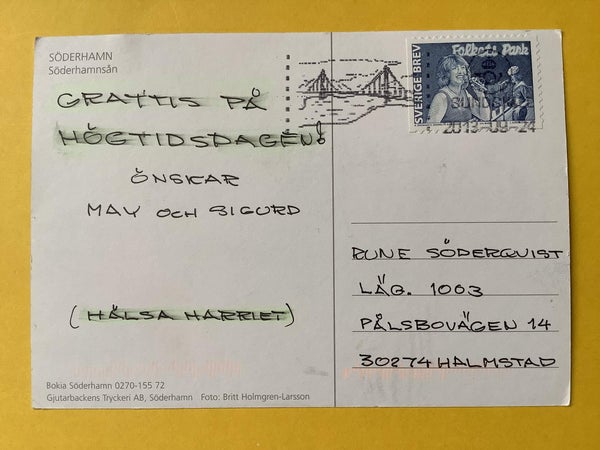 SÖDERHAMN
Söderhamnsån
GRATTIS PÅ
HÖGTIDSDAGEN!
ÖNSKAR
MAY OCH SIGURD
(HÄLSA HARRIET)
Bokia Söderhamn 0270-155 72
Gjutarbackens Tryckeri AB, Söderhamn Foto: Britt Holmgren-Larsson
SVERIGE BREV
Folkets Park
2013-09-24
RUNE SÖDERQVIST
LÄG. 1003
PÅLSBOVÄGEN 14
30274 HALMSTAD